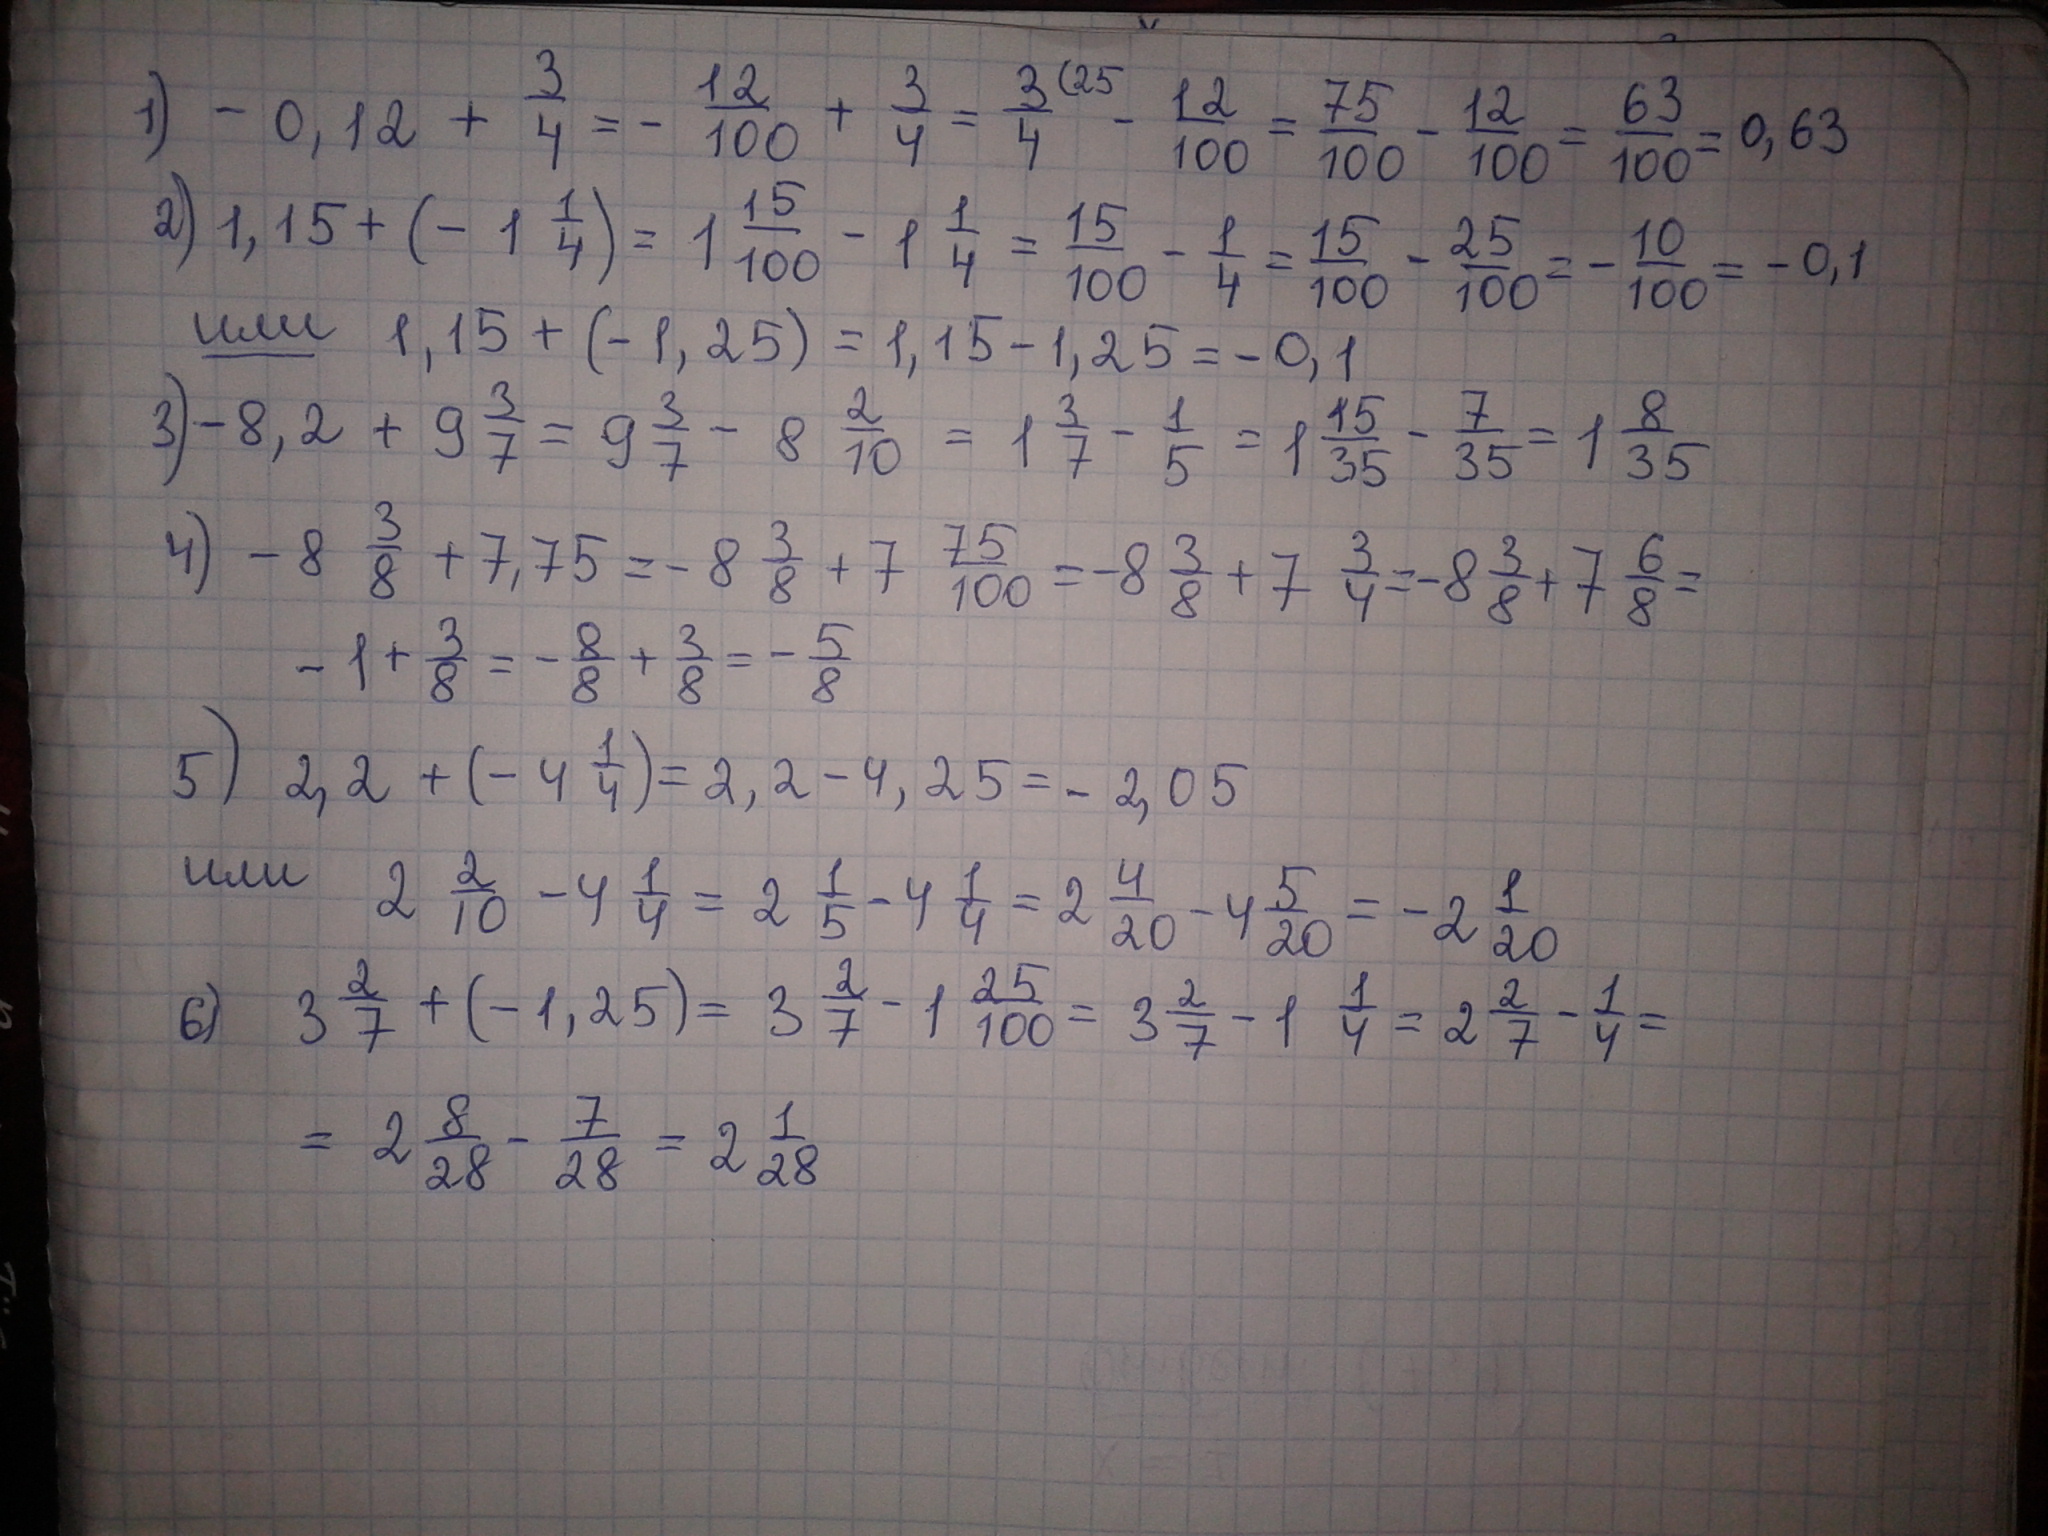 1) - 0,12 + 3/4 = - 12/100 + 3/4 = 3/4 (25 - 12/100 = 75/100 - 12/100 = 63/100 = 0,63
2) 1,15 + (- 1 1/4) = 1 15/100 - 1 1/4 = 15/100 - 1/4 = 15/100 - 25/100 = - 10/100 = - 0,1
или 1,15 + (- 1,25) = 1,15 - 1,25 = - 0,1
3) - 8,2 + 9 3/7 = 9 3/7 - 8 2/10 = 1 3/7 - 1/5 = 1 15/35 - 7/35 = 1 8/35
4) - 8 3/8 + 7,75 = - 8 3/8 + 7 75/100 = - 8 3/8 + 7 3/4 = - 8 3/8 + 7 6/8 =
- 1 + 3/8 = - 8/8 + 3/8 = - 5/8
5) 2,2 + (- 4 1/4) = 2,2 - 4,25 = - 2,05
или 2 2/10 - 4 1/4 = 2 1/5 - 4 1/4 = 2 4/20 - 4 5/20 = - 2 1/20
6) 3 2/7 + (- 1,25) = 3 2/7 - 1 25/100 = 3 2/7 - 1 1/4 = 2 2/7 - 1/4 =
= 2 8/28 - 7/28 = 2 1/28